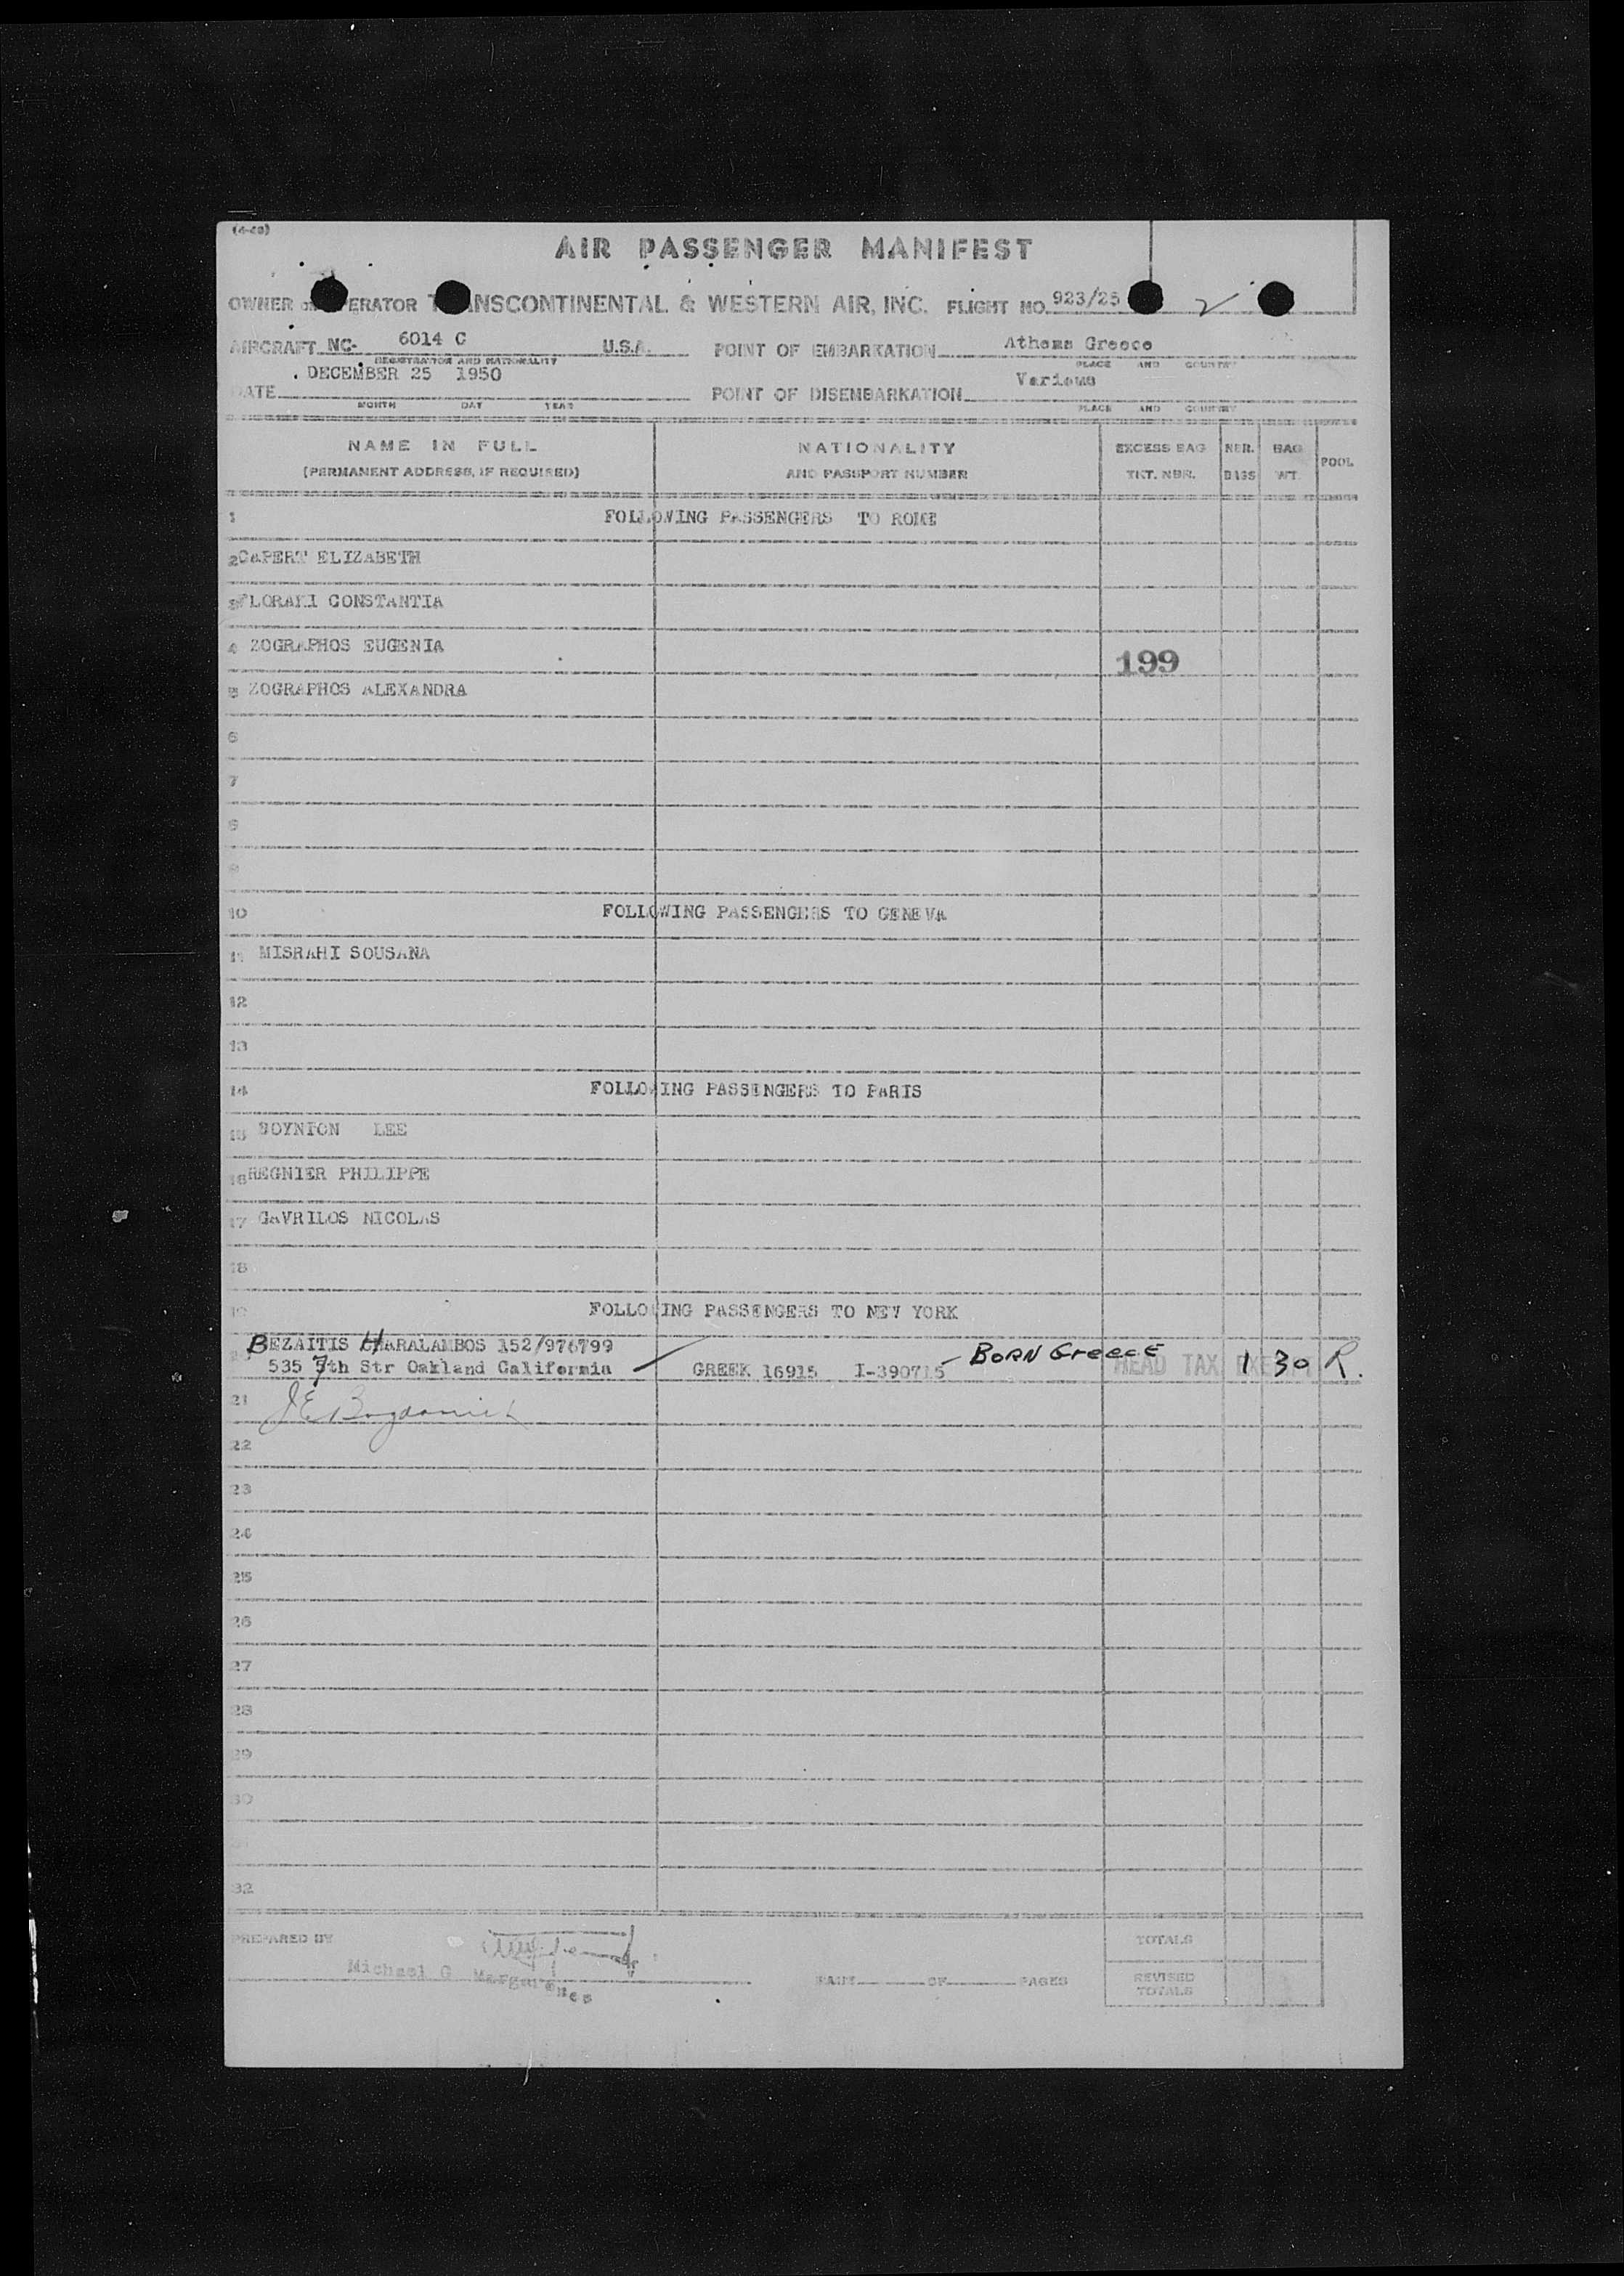 (4-48)
AIR PASSENGER MANIFEST
OWNER ERATOR ANSCONTINENTAL & WESTERN AIR, INC. FLIGHT NO. 923/25 2
AIRCRAFT NC- 6014 C U.S.A. POINT OF EMBARKATION Athens Greece
REGISTRATION AND NATIONALITY PLACE AND COUNTRY
DATE DECEMBER 25 1950 POINT OF DISEMBARKATION Various
MONTH DAY YEAR PLACE AND COUNTRY
NAME IN FULL NATIONALITY EXCESS BAG NBR. BAG POOL
(PERMANENT ADDRESS, IF REQUIRED) AND PASSPORT NUMBER TKT. NBR. BAGS WT.
1 FOLLOWING PASSENGERS TO ROME
2 CAPERT ELIZABETH
3 FLORAKI CONSTANTIA
4 ZOGRAPHOS EUGENIA
199
5 ZOGRAPHOS ALEXANDRA
6
7
8
9
10 FOLLOWING PASSENGERS TO GENEVA
11 MISRAHI SOUSANA
12
13
14 FOLLOWING PASSENGERS TO PARIS
15 BOYNTON LEE
16 REGNIER PHILIPPE
17 GAVRILOS NICOLAS
18
19 FOLLOWING PASSENGERS TO NEW YORK
20 BEZAITIS HARALAMBOS 152/976799
535 7th Str Oakland California GREEK 16915 I-390715 BORN GreecE HEAD TAX EXEMPT 1 30 R.
21 J E Bogdanich
22
23
24
25
26
27
28
29
30
32
PREPARED BY TOTALS
Michael G PAGE OF PAGES REVISED
TOTALS